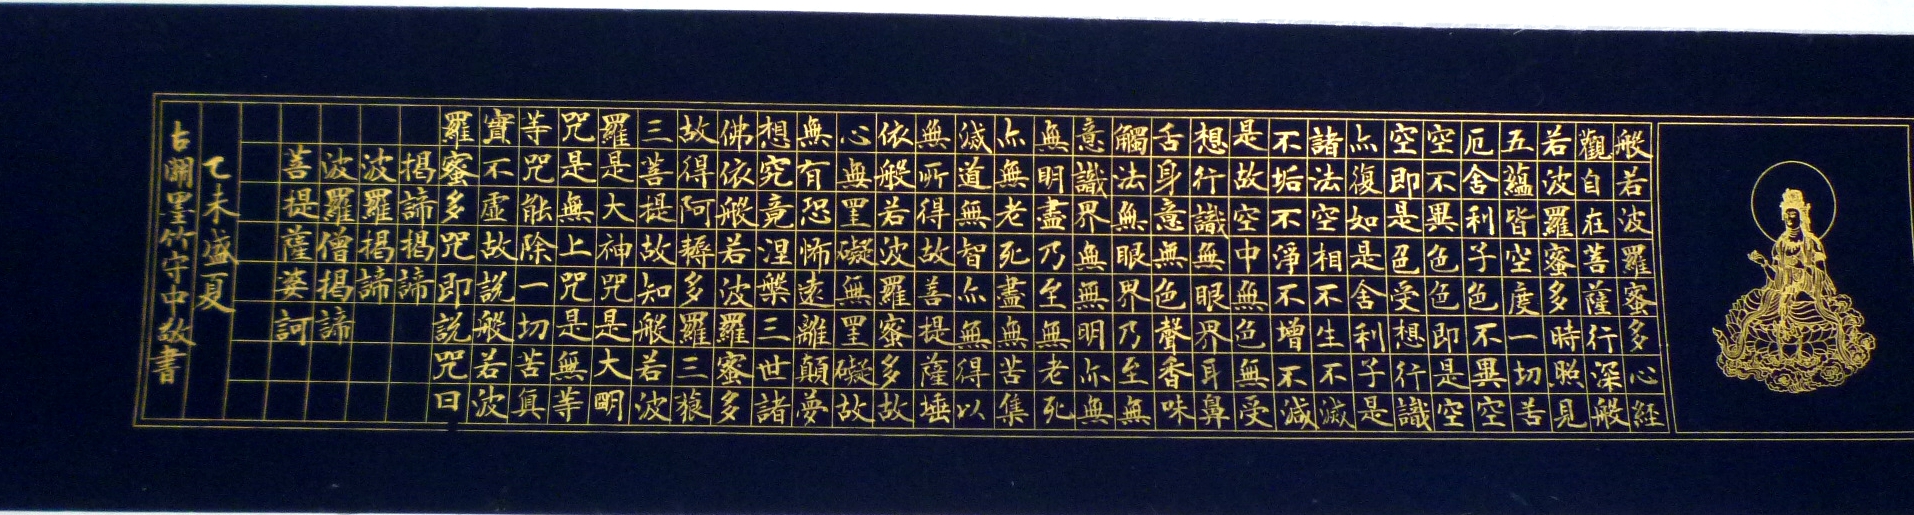 般若波羅蜜多心経
觀自在菩薩行深般
若波羅蜜多時照見
五蘊皆空度一切苦
厄舍利子色不異空
空不異色色即是空
空即是色受想行識
亦復如是舍利子是
諸法空相不生不滅
不垢不淨不增不減
是故空中無色無受
想行識無眼界耳鼻
舌身意無色聲香味
觸法無眼界乃至無
意識界無無明亦無
無明盡乃至無老死
亦無老死盡無苦集
滅道無智亦無得以
無所得故菩提薩埵
依般若波羅蜜多故
心無罣礙無罣礙故
無有恐怖遠離顛夢
想究竟涅槃三世諸
佛依般若波羅蜜多
故得阿耨多羅三藐
三菩提故知般若波
羅是大神咒是大明
咒是無上咒是無等
等咒能除一切苦真
實不虛故說般若波
羅蜜多咒即說咒曰
揭諦揭諦
波羅揭諦
波羅僧揭諦
菩提薩婆訶
乙未盛夏
古閩墨竹守中敬書